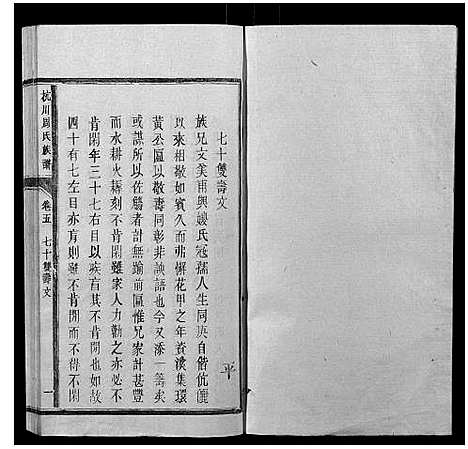 七十雙壽文
族兄文美甫興嫂氏冠孺人生同庚自偕伉儷
以來相敬如賓久而弗懈花甲之年資溪集環
黃公區以敬壽同彰非諛語也今又添一籌矣
或謀所以佐觴者計無踰前區惟兄家計甚豐
而水耕火耨刻不肯閒雖家人力勸之亦必不
肯閒年三十七右目以疾盲其不肯閒也如故
四十有七左目亦盲則雖不肯閒而不得不閒
平
杭川周氏族譜
卷五
七十雙壽文
一